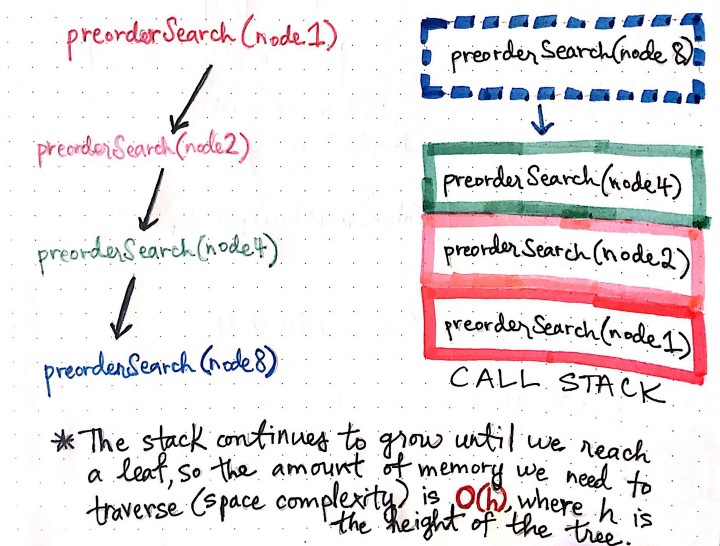 preorderSearch(node1)
preorderSearch(node2)
preorderSearch(node4)
preorderSearch(node8)
preorderSearch(node 8)
preorderSearch(node4)
preorderSearch(node2)
preorderSearch(node1)
CALL STACK
* The stack continues to grow until we reach
a leaf, so the amount of memory we need to
traverse (space complexity) is O(h), where h is
the height of the tree.